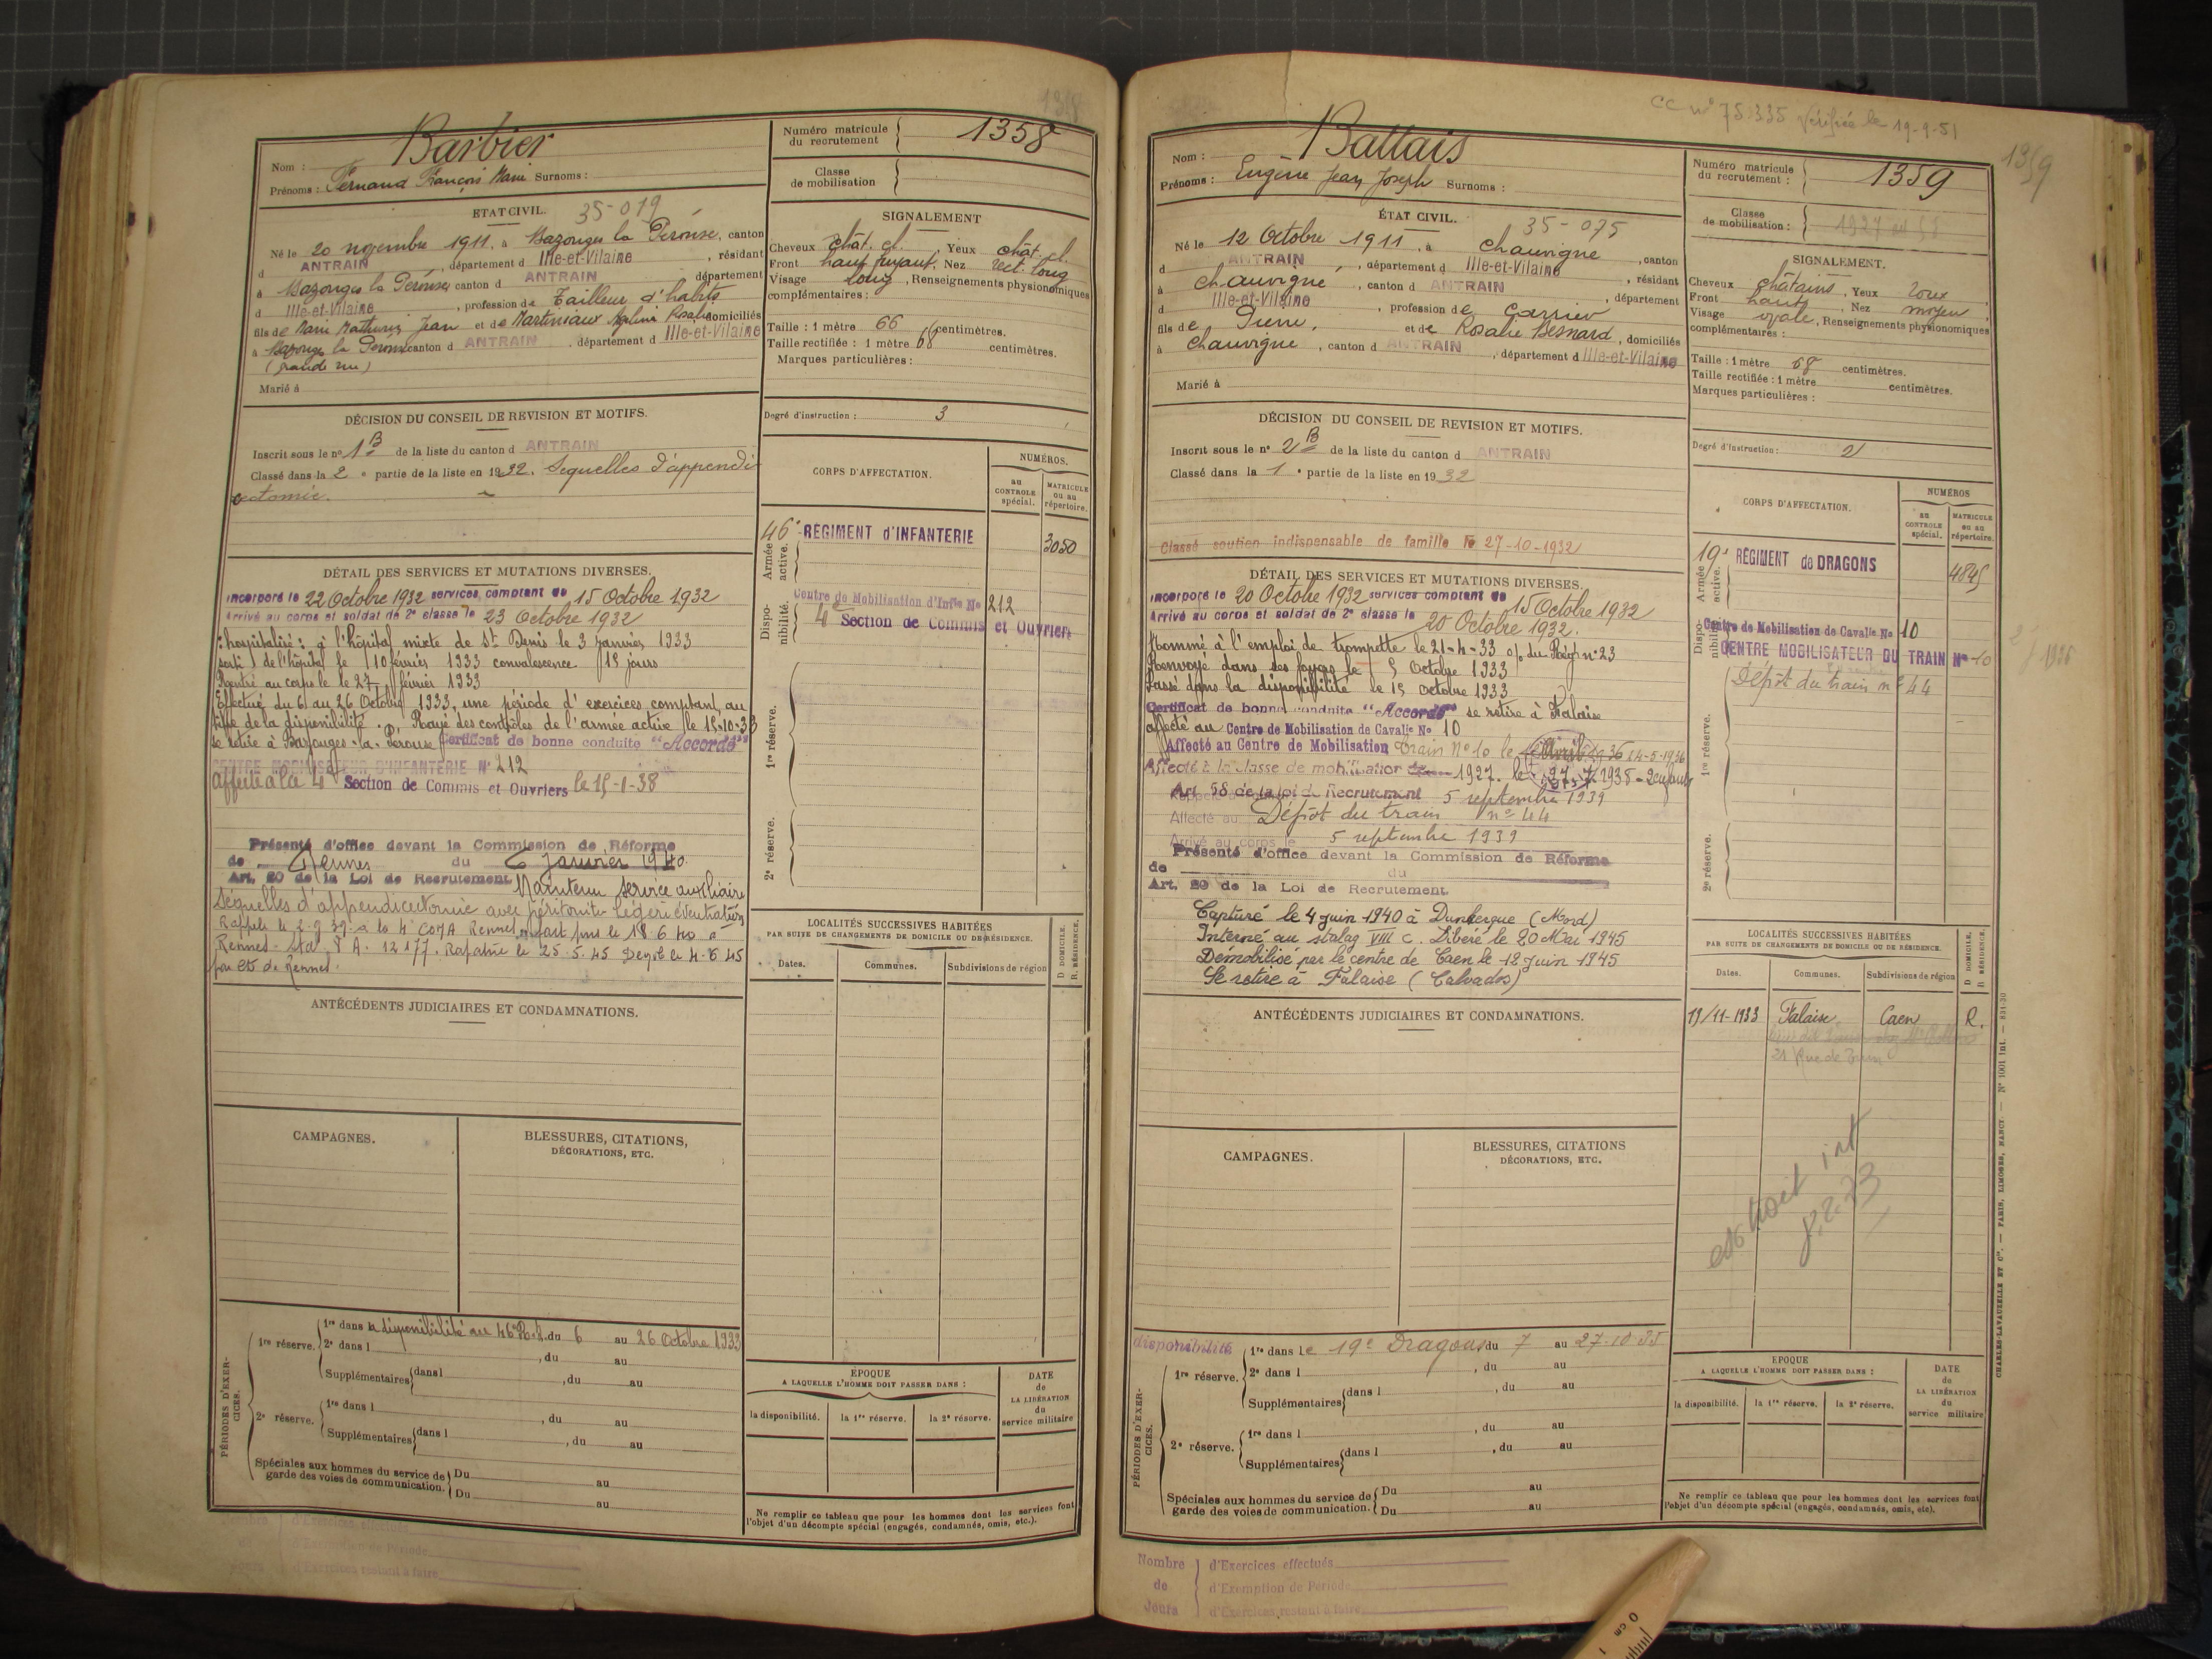 1318
Barbier
Nom :
Prénoms : Fernand François Marie Surnoms :
Numéro matricule du recrutement
1358
Classe de mobilisation
ETAT CIVIL. 35-019
Né le 20 novembre 1911, à Bazouges la Pérouse, canton
d ANTRAIN, département d Ille-et-Vilaine, résidant
à Bazouges la Pérouse canton d ANTRAIN département
d Ille-et-Vilaine, profession de Tailleur d'habits
fils de Marie Mathurin Jean et de Martiniaux Rosalie domiciliés
à Bazouges la Pérouse canton d ANTRAIN, département d Ille-et-Vilaine
(grande rue)
Marié à
SIGNALEMENT
Cheveux chât. cl., Yeux chât. cl.
Front haut fuyant, Nez rect. long
Visage long, Renseignements physionomiques
complémentaires :
Taille : 1 mètre 66 centimètres.
Taille rectifiée : 1 mètre 68 centimètres.
Marques particulières :
Degré d'instruction : 3
DÉCISION DU CONSEIL DE REVISION ET MOTIFS.
Inscrit sous le nº 1 B de la liste du canton d ANTRAIN
Classé dans la 2e partie de la liste en 1932. Sequelles d'appendi
cectomie.
CORPS D'AFFECTATION.
NUMÉROS.
au CONTROLE spécial.
MATRICULE ou au répertoire.
Armée active.
46e REGIMENT d'INFANTERIE
3050
Disponibilité.
Centre de Mobilisation d'Infie No 212
4e Section de Commis et Ouvriers
1re réserve.
2e réserve.
DÉTAIL DES SERVICES ET MUTATIONS DIVERSES.
Incorporé le 22 Octobre 1932 services comptant du 15 Octobre 1932
Arrivé au corps et soldat de 2e classe le 23 Octobre 1932
hospitalisé : à l'hôpital mixte de St Denis le 3 janvier 1933
sorti de l'hôpital le 10 février 1933 convalescence 18 jours
Rentré au corps le le 27 février 1933
Effectué du 6 au 26 Octobre 1933, une période d'exercices comptant au
titre de la disponibilité. Rayé des contrôles de l'armée active le 15-10-33
se retire à Bazouges-la-Pérouse Certificat de bonne conduite "Accordé"
CENTRE MOBILISATEUR D'INFANTERIE No 212
affecté à la 4e Section de Commis et Ouvriers le 15-1-38
Présenté d'office devant la Commission de Réforme
de Rennes du 6 Janvier 1940.
Art. 20 de la Loi de Recrutement Maintenu service auxiliaire
Séquelles d'appendicectomie avec péritonite légère éventration
Rappelé le 2.9.39 à la 4e COMA Rennes fait pris le 18 6 40 à
Rennes. Stal. A. 12177. Rapatrié le 25.5.45 Dem le 4-6 45
par Cts de Rennes.
LOCALITÉS SUCCESSIVES HABITÉES
PAR SUITE DE CHANGEMENTS DE DOMICILE OU DE RÉSIDENCE.
Dates.
Communes.
Subdivisions de région
D DOMICILE. R. RÉSIDENCE.
ANTÉCÉDENTS JUDICIAIRES ET CONDAMNATIONS.
CAMPAGNES.
BLESSURES, CITATIONS, DÉCORATIONS, ETC.
PÉRIODES D'EXERCICES.
1re réserve.
1re dans la disponibilité au 46e R.I. du 6 au 26 Octobre 1933
2e dans l , du au
Supplémentaires dans l , du au
2e réserve.
1re dans l , du au
Supplémentaires dans l , du au
Spéciales aux hommes du service de garde des voies de communication.
Du au
Du au
ÉPOQUE
A LAQUELLE L'HOMME DOIT PASSER DANS :
la disponibilité.
la 1re réserve.
la 2e réserve.
DATE de LA LIBÉRATION du service militaire
Ne remplir ce tableau que pour les hommes dont les services font
l'objet d'un décompte spécial (engagés, condamnés, omis, etc.).
d'Exemption de Période
d'Exercices restant à faire
CC nº 75.335 Vérifiée le 19-9-51
1359
Battais
Nom :
Prénoms : Eugène Jean Joseph Surnoms :
Numéro matricule du recrutement :
1359
Classe de mobilisation :
ÉTAT CIVIL. 35-075
Né le 12 Octobre 1911, à Chauvigné, canton
d ANTRAIN, département d Ille-et-Vilaine, résidant
à Chauvigné, canton d ANTRAIN, département
d Ille-et-Vilaine, profession de Carrier
fils de Pierre, et de Rosalie Besnard, domiciliés
à Chauvigné, canton d ANTRAIN, département d Ille-et-Vilaine
Marié à
SIGNALEMENT.
Cheveux châtains, Yeux roux,
Front haut, Nez moyen,
Visage ovale, Renseignements physionomiques
complémentaires :
Taille : 1 mètre 68 centimètres.
Taille rectifiée : 1 mètre centimètres.
Marques particulières :
Degré d'instruction : 2
DÉCISION DU CONSEIL DE REVISION ET MOTIFS.
Inscrit sous le nº 2 B de la liste du canton d ANTRAIN
Classé dans la 1e partie de la liste en 1932
Classé soutien indispensable de famille le 27-10-1932
CORPS D'AFFECTATION.
NUMÉROS
au CONTROLE spécial.
MATRICULE ou au répertoire.
Armée active.
19e RÉGIMENT de DRAGONS
4845
Disponibilité.
Centre de Mobilisation de Cavalie No 10
CENTRE MOBILISATEUR DU TRAIN No 10
Dépôt du train nº 44
1re réserve.
2e réserve.
DÉTAIL DES SERVICES ET MUTATIONS DIVERSES.
Incorporé le 20 Octobre 1932 services comptant du 15 Octobre 1932
Arrivé au corps et soldat de 2e classe le 20 Octobre 1932.
Nommé à l'emploi de trompette le 21-4-33 o/ du Régt nº 23
Renvoyé dans ses foyers le 5 Octobre 1933
Passé dans la disponibilité le 15 Octobre 1933
Certificat de bonne conduite "Accordé" se retire à Falaise
affecté au Centre de Mobilisation de Cavalie No 10
Affecté au Centre de Mobilisation Train No 10 le 14-5-1936
Affecté à la classe de mobilisation 1927. le 27.7.1938 - 2 enfants
Art 58 de la loi de Recrutement
Rappelé 5 septembre 1939
Affecté au Dépôt du train nº 44
Arrivé au corps le 5 septembre 1939
Présenté d'office devant la Commission de Réforme
de du
Art. 20 de la Loi de Recrutement.
Capturé le 4 juin 1940 à Dunkerque (Nord)
Interné au stalag VIII C. Libéré le 20 Mai 1945
Démobilisé par le centre de Caen le 12 juin 1945
Se retire à Falaise (Calvados)
LOCALITÉS SUCCESSIVES HABITÉES
PAR SUITE DE CHANGEMENTS DE DOMICILE OU DE RÉSIDENCE.
Dates.
Communes.
Subdivisions de région
D DOMICILE. R RÉSIDENCE.
19/11-1933 Falaise Caen R.
21 Rue de
extrait int
8.2.73
ANTÉCÉDENTS JUDICIAIRES ET CONDAMNATIONS.
CAMPAGNES.
BLESSURES, CITATIONS DÉCORATIONS, ETC.
PÉRIODES D'EXERCICES.
disponibilité
1re réserve.
1re dans le 19e Dragons du 7 au 27.10.35
2e dans l , du au
Supplémentaires dans l , du au
2e réserve.
1re dans l , du au
Supplémentaires dans l , du au
Spéciales aux hommes du service de garde des voies de communication.
Du au
Du au
ÉPOQUE
A LAQUELLE L'HOMME DOIT PASSER DANS :
la disponibilité.
la 1re réserve.
la 2e réserve.
DATE de LA LIBÉRATION du service militaire
Ne remplir ce tableau que pour les hommes dont les services font
l'objet d'un décompte spécial (engagés, condamnés, omis, etc).
CHARLES-LAVAUZELLE ET Cie. — PARIS, LIMOGES, NANCY. — Nº 1001 int. — 831-30
Nombre de Jours
d'Exercices effectués
d'Exemption de Période
d'Exercices restant à faire
0 cm 1